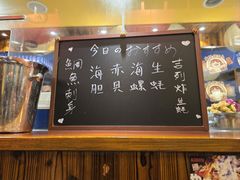 今日のおすすめ
鯛魚刺身
海胆
赤貝
海螺
生蚝
吉列炸生蚝